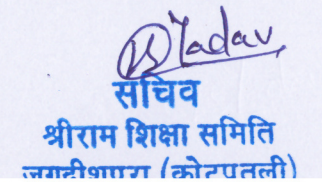 Yadav
सचिव
श्रीराम शिक्षा समिति
जगदीशपुरा (कोटपूतली)